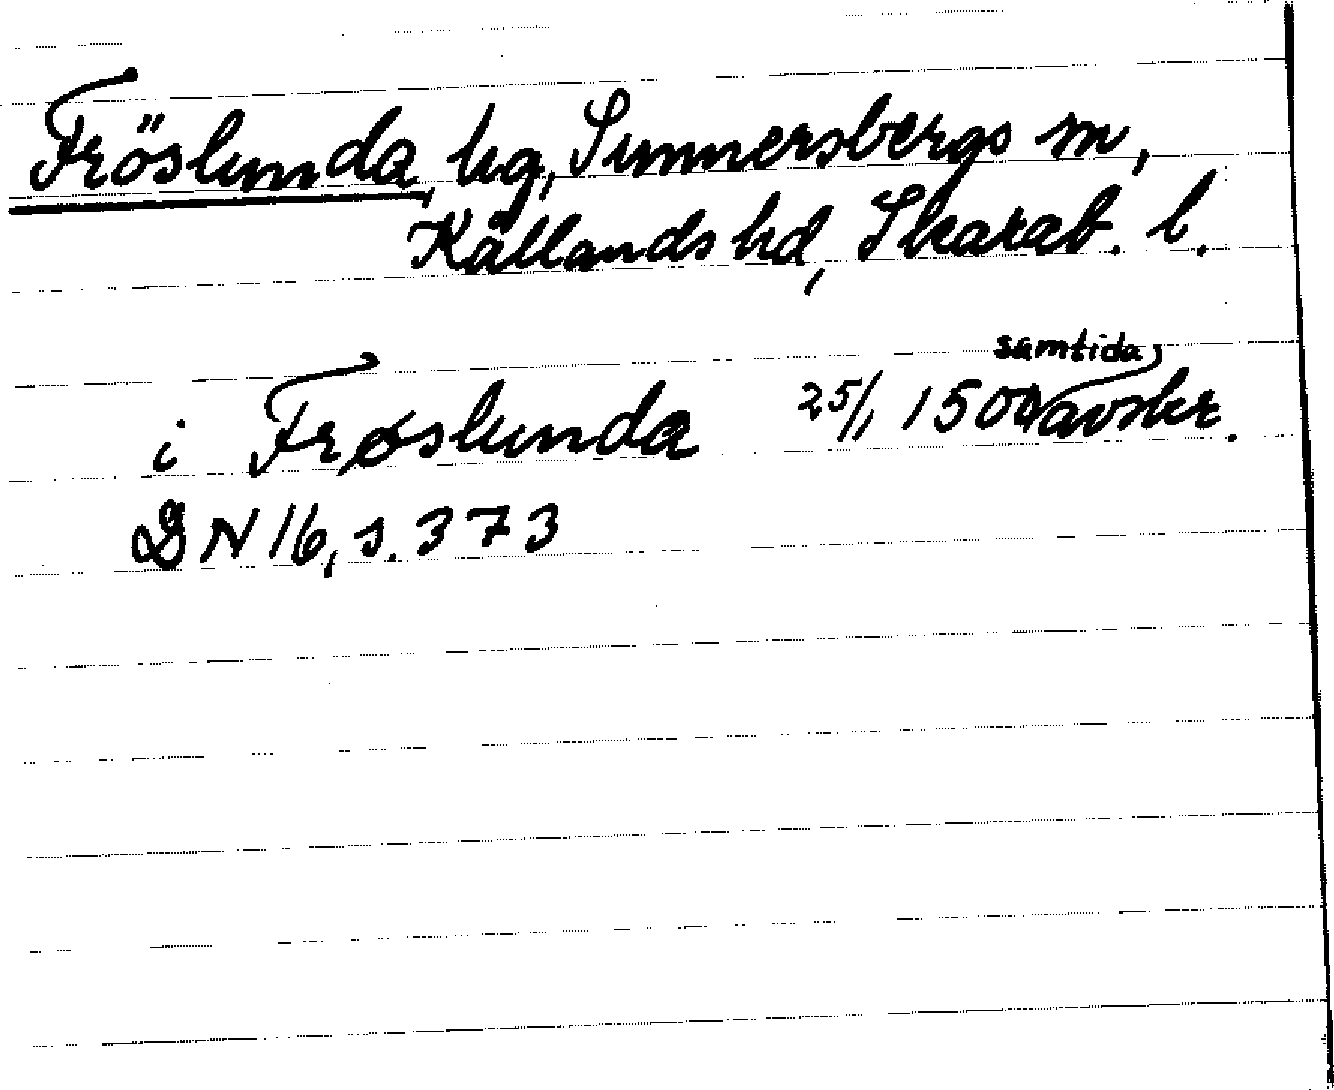 Fröslunda, hg, Sunnersbergs sn,
Kållands hd, Skarab. l.
i Frøslunda 25/1 1500 samtida avskr.
DN 16, s. 373